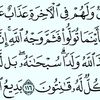 وَلَهُمْ فِى ٱلْءَاخِرَةِ عَذَابٌ
فَأَيْنَمَا تُوَلُّوا۟ فَثَمَّ وَجْهُ ٱللَّهِ إِ
ٱللَّهُ وَلَدًا ۗ سُبْحَٰنَهُۥ ۖ بَل
كُلٌّ لَّهُۥ قَٰنِتُونَ ١١٦ بَدِيعُ